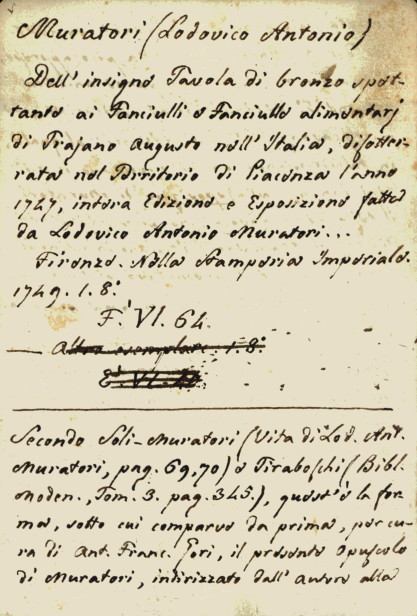 Muratori (Lodovico Antonio)
Dell' insigne Tavola di bronzo spet-
tante ai Fanciulli e Fanciulle alimentarj
di Trajano Augusto nell' Italia, disotter-
rata nel Territorio di Piacenza l'anno
1747, intera Edizione e Esposizione fatta
da Lodovico Antonio Muratori...
Firenze. Nella Stamperia Imperiale.
1749. 1. 8.º
F. VI. 64.
Altro esemplare. 1. 8.º
Secondo Soli-Muratori (Vita di Lod. Ant.
Muratori, pag. 69, 70) e Tiraboschi (Bibl.
Moden., Tom. 3. pag. 345.), quest'è la for-
ma, sotto cui comparve da prima, per cu-
ra di Ant. Franc. Gori, il presente Opuscolo
di Muratori, intirizzato dall' autore alla